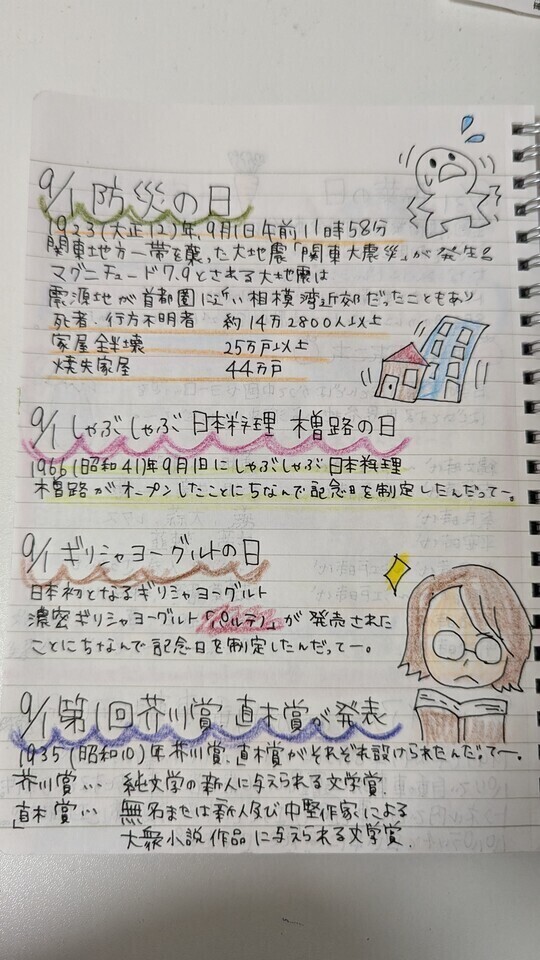 9/1 防災の日
1923(大正12)年、9月1日午前11時58分
関東地方一帯を襲った大地震「関東大震災」が発生。
マグニチュード7.9とされる大地震は
震源地が首都圏に近い相模湾近郊だったこともあり
死者・行方不明者 約14万2800人以上
家屋全半壊 25万戸以上
焼失家屋 44万戸
9/1 しゃぶしゃぶ 日本料理 木曽路の日
1966(昭和41)年9月1日にしゃぶしゃぶ日本料理
木曽路がオープンしたことにちなんで記念日を制定したんだってー。
9/1 ギリシャヨーグルトの日
日本初となるギリシャヨーグルト
濃密ギリシャヨーグルト「パルテノ」が発売された
ことにちなんで記念日を制定したんだってー。
9/1 第1回芥川賞 直木賞が発表
1935(昭和10)年芥川賞、直木賞がそれぞれ設けられたんだってー。
芥川賞… 純文学の新人に与えられる文学賞.
直木賞… 無名または新人及び中堅作家による
大衆小説作品に与えられる文学賞.